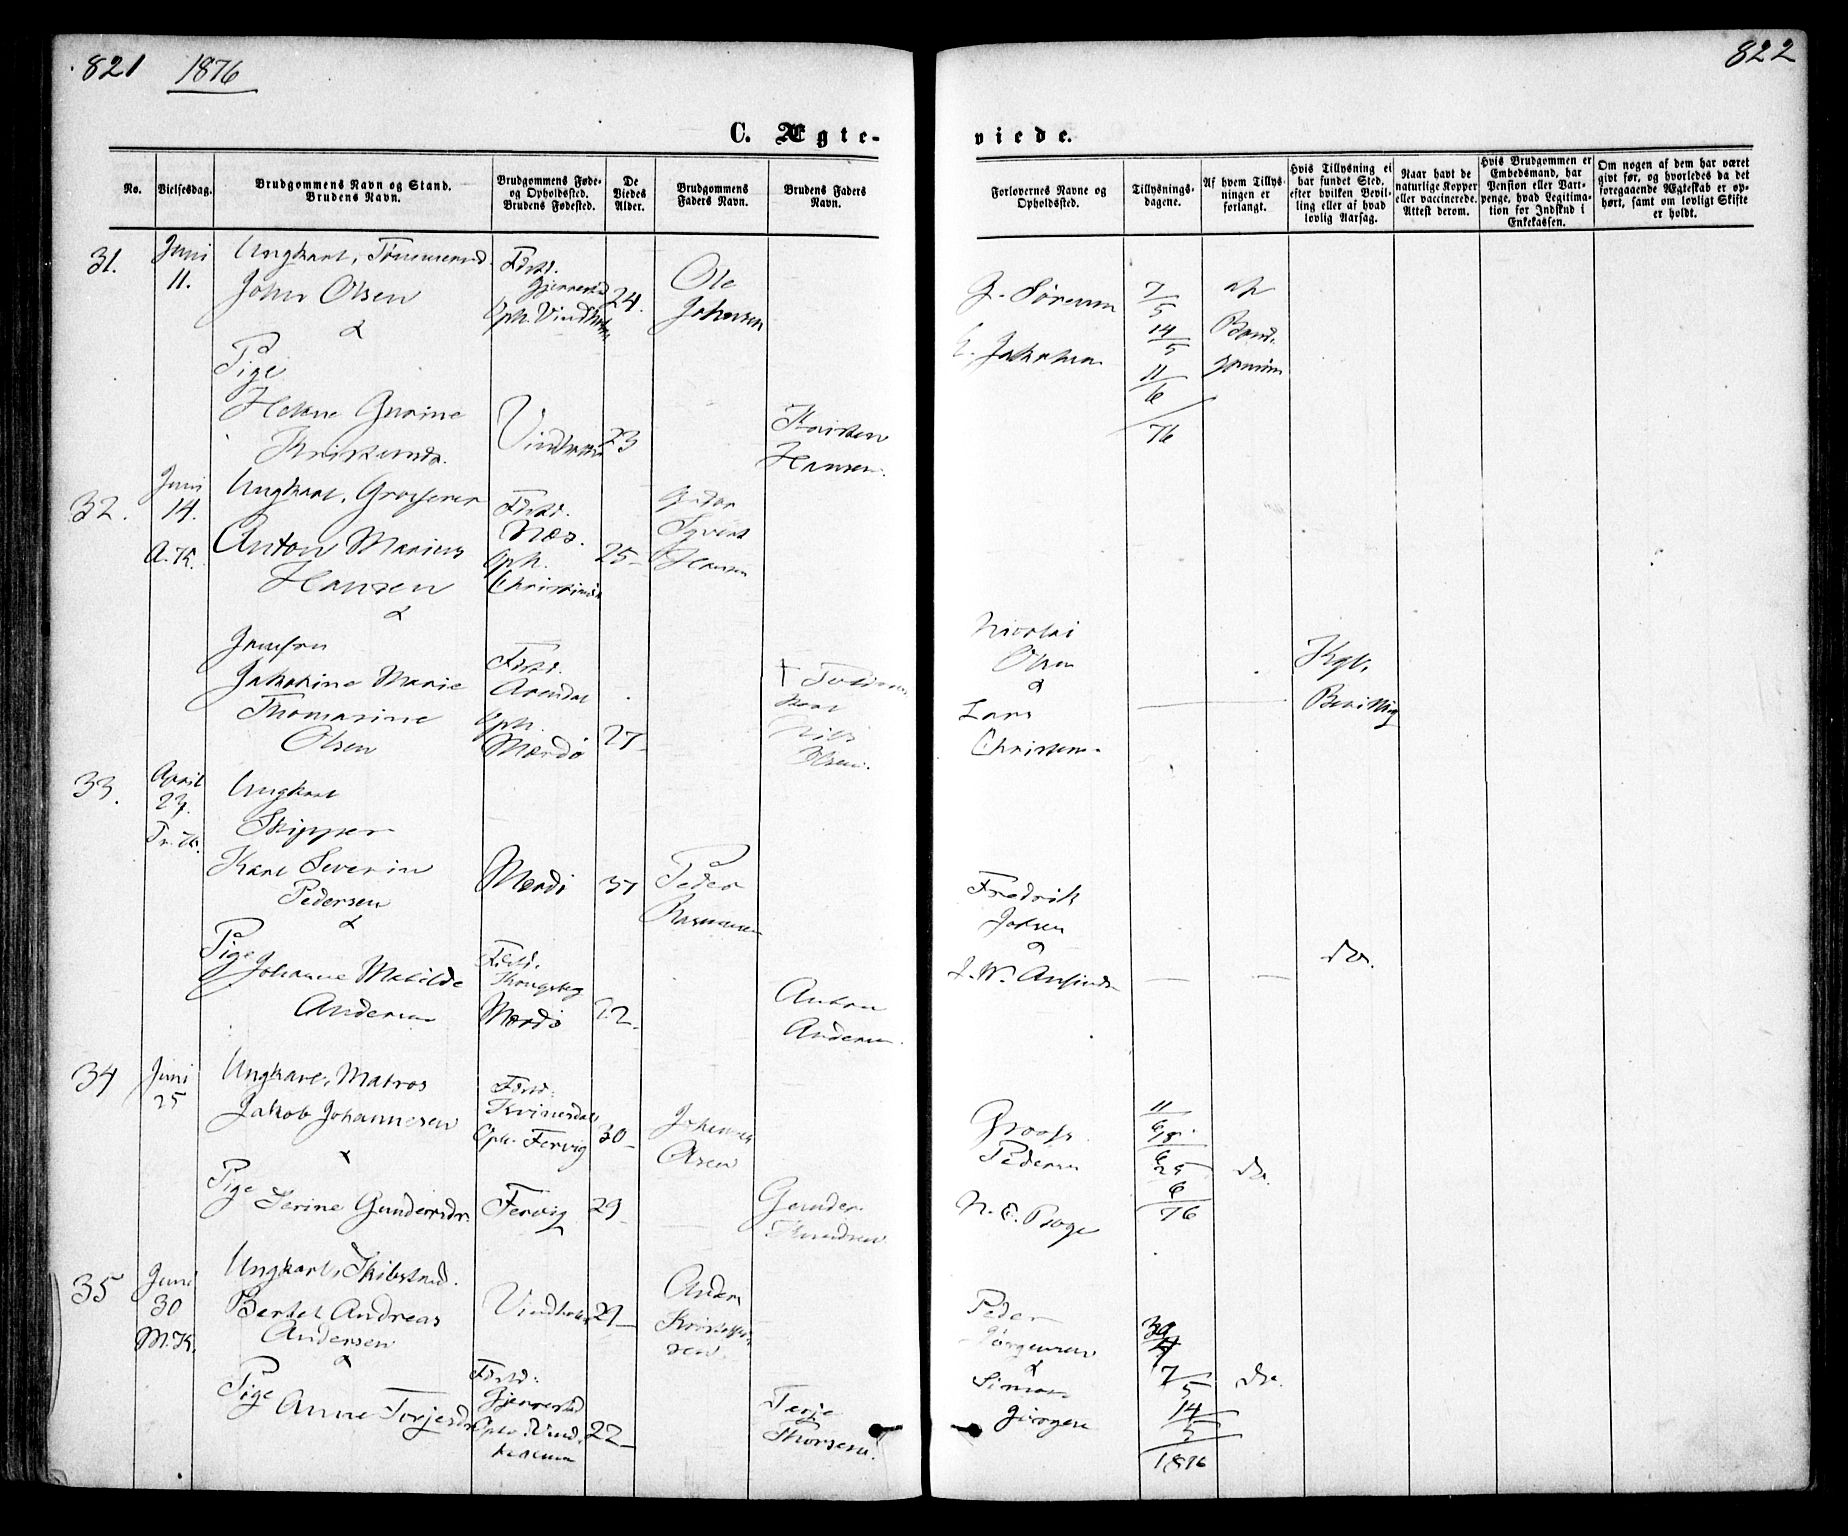 821 1876
822
C. Ægte-
viede.
No.
Vielsesdag.
Brudgommens Navn og Stand.
Brudens Navn.
Brudgommens Føde-
og Opholdssted.
Brudens Fødested.
De
Viedes
Alder.
Brudgommens
Faders Navn.
Brudens Faders
Navn.
Forlovernes Navne og
Opholdssted.
Tillysnings-
dagene.
Af hvem Tillys-
ningen er
forlangt.
Hvis Tillysning ei
har fundet Sted,
efter hvilken Bevil-
ling eller af hvad
lovlig Aarsag.
Naar havt de
naturlige Kopper
eller vaccinerede.
Attest derom.
Hvis Brudgommen er
Embedsmand, har
Pension eller Vart-
penge, hvad Legitima-
tion for Indskud i
Enkekassen.
Om nogen af dem har været
gift før, og hvorledes da det
foregaaende Ægteskab er op-
hørt, samt om lovligt Skifte
er holdt.
31.
Juni
11.
Ungkarl, Tømmermd.
John Olsen
&
Pige
Helene Gurine
Fødst.
Gjerrestad
Oph. Vindholm
24.
Ole
Johnsen
Vindholm
23
Karsten
Hansen.
G. Sørensen
Jakobsen
7/5
14/5
11/6
76
af
Brud-
gommen
32.
Juni
14.
A.K.
Ungkarl, Grosserer
Anton Marius
Hansen
&
Jomfru
Jakobine Marie
Thomasine
Olsen
Fødst.
Næs.
Oph.
Christiania
25
Syvert
Hansen
Fødst.
Arendal
Oph.
Mærdø
27
Niels
Olsen.
Nicolai
Olsen
&
Lars
Christensen
Kgl.
Bevilling
33.
April
23.
Tr. K.
Ungkarl
Skipper
Karl Severin
Pedersen
&
Pige Johanne Matilde
Andersen
Mærdø
37
Peder
Rasmussen
Fødst.
Kongsberg
Mærdø
22
Anton
Andersen.
Fredrik
Jossen
&
do.
34
Juni
25
Ungkarl, Matros
Jakob Johannesen
&
Pige Serine Gundersdr.
Fødst.
Kvinesdal
Oph. Fervig
30
Johannes
Olsen
Fervig
29
Gunder
Knudsen
Pedersen
N. E. Boge
11/6
18/6
25/6
76
do.
35
Juni
30
M.K.
Ungkarl, Skibstmd.
Bertel Andreas
Andersen
&
Pige Anne Torjesdr.
Vindholm
Anders
Kristoffer-
sen.
Fødst.
Gjerrestad
Oph. Vind-
holmen
22
Terje
Thorsen.
Peder
Jørgensen
&
Simon
Jørgensen
30/4
7/5
14/5
1876
do.